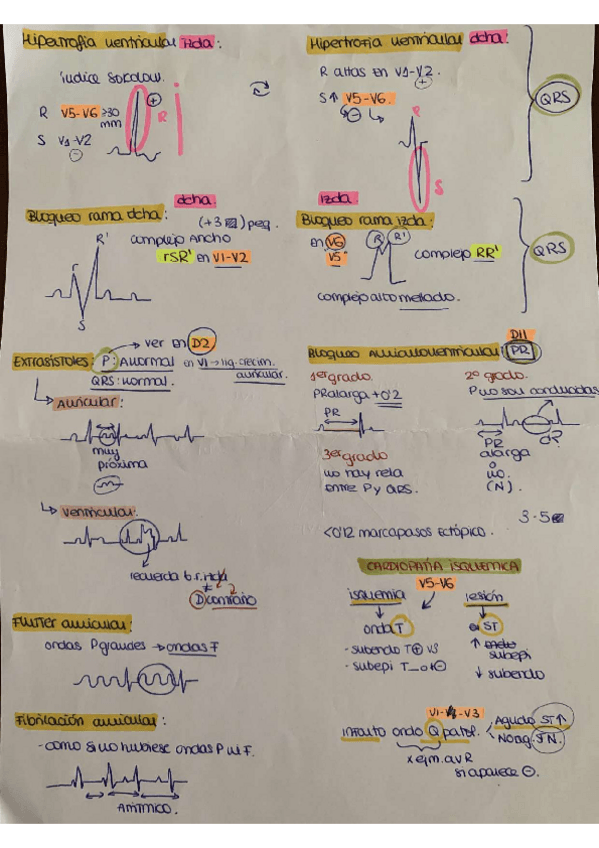 Hipertrofia ventricular izda:
índice Sokolow.
R V5-V6 ≥30 mm
S V1-V2
R
Hipertrofia ventricular dcha:
R altas en V1-V2.
S↑ V5-V6.
R
S
QRS
dcha.
Bloqueo rama dcha: (+3) peq.
complejo Ancho
rSR' en V1-V2
R'
r
S
izda.
Bloqueo rama izda:
en V6
V5
R R'
complejo RR'
complejo alto mellado.
QRS
→ ver en D2
Extrasístoles: P: Anormal en V1→
QRS: normal.
auricular.
↳ Auricular:
muy
próxima
↳ Ventricular:
recuerda b.r.
contrario
Flutter auricular:
ondas P grandes → ondas F
Fibrilación auricular:
- como si no hubiese ondas P ni F.
Arrítmico.
DII
Bloqueo Auriculoventricular: PR
1er grado.
PR alarga +0'2
PR
2º grado.
P no son conducidas
PR
alarga
o
no.
(N).
d?
3er grado
no hay rela
entre P y QRS.
3-5
<0'12 marcapasos ectópico.
CARDIOPATÍA ISQUÉMICA
V5-V6
isquemia
onda T
- subendo T⊕ V3
- subepi T_o⊖
lesión
ST
↑ subepi
↓ subendo
V1-V3
infarto onda Q patol.
Agudo ST↑
No ag. ST N.
x ejm. avR
si aparece ⊖.